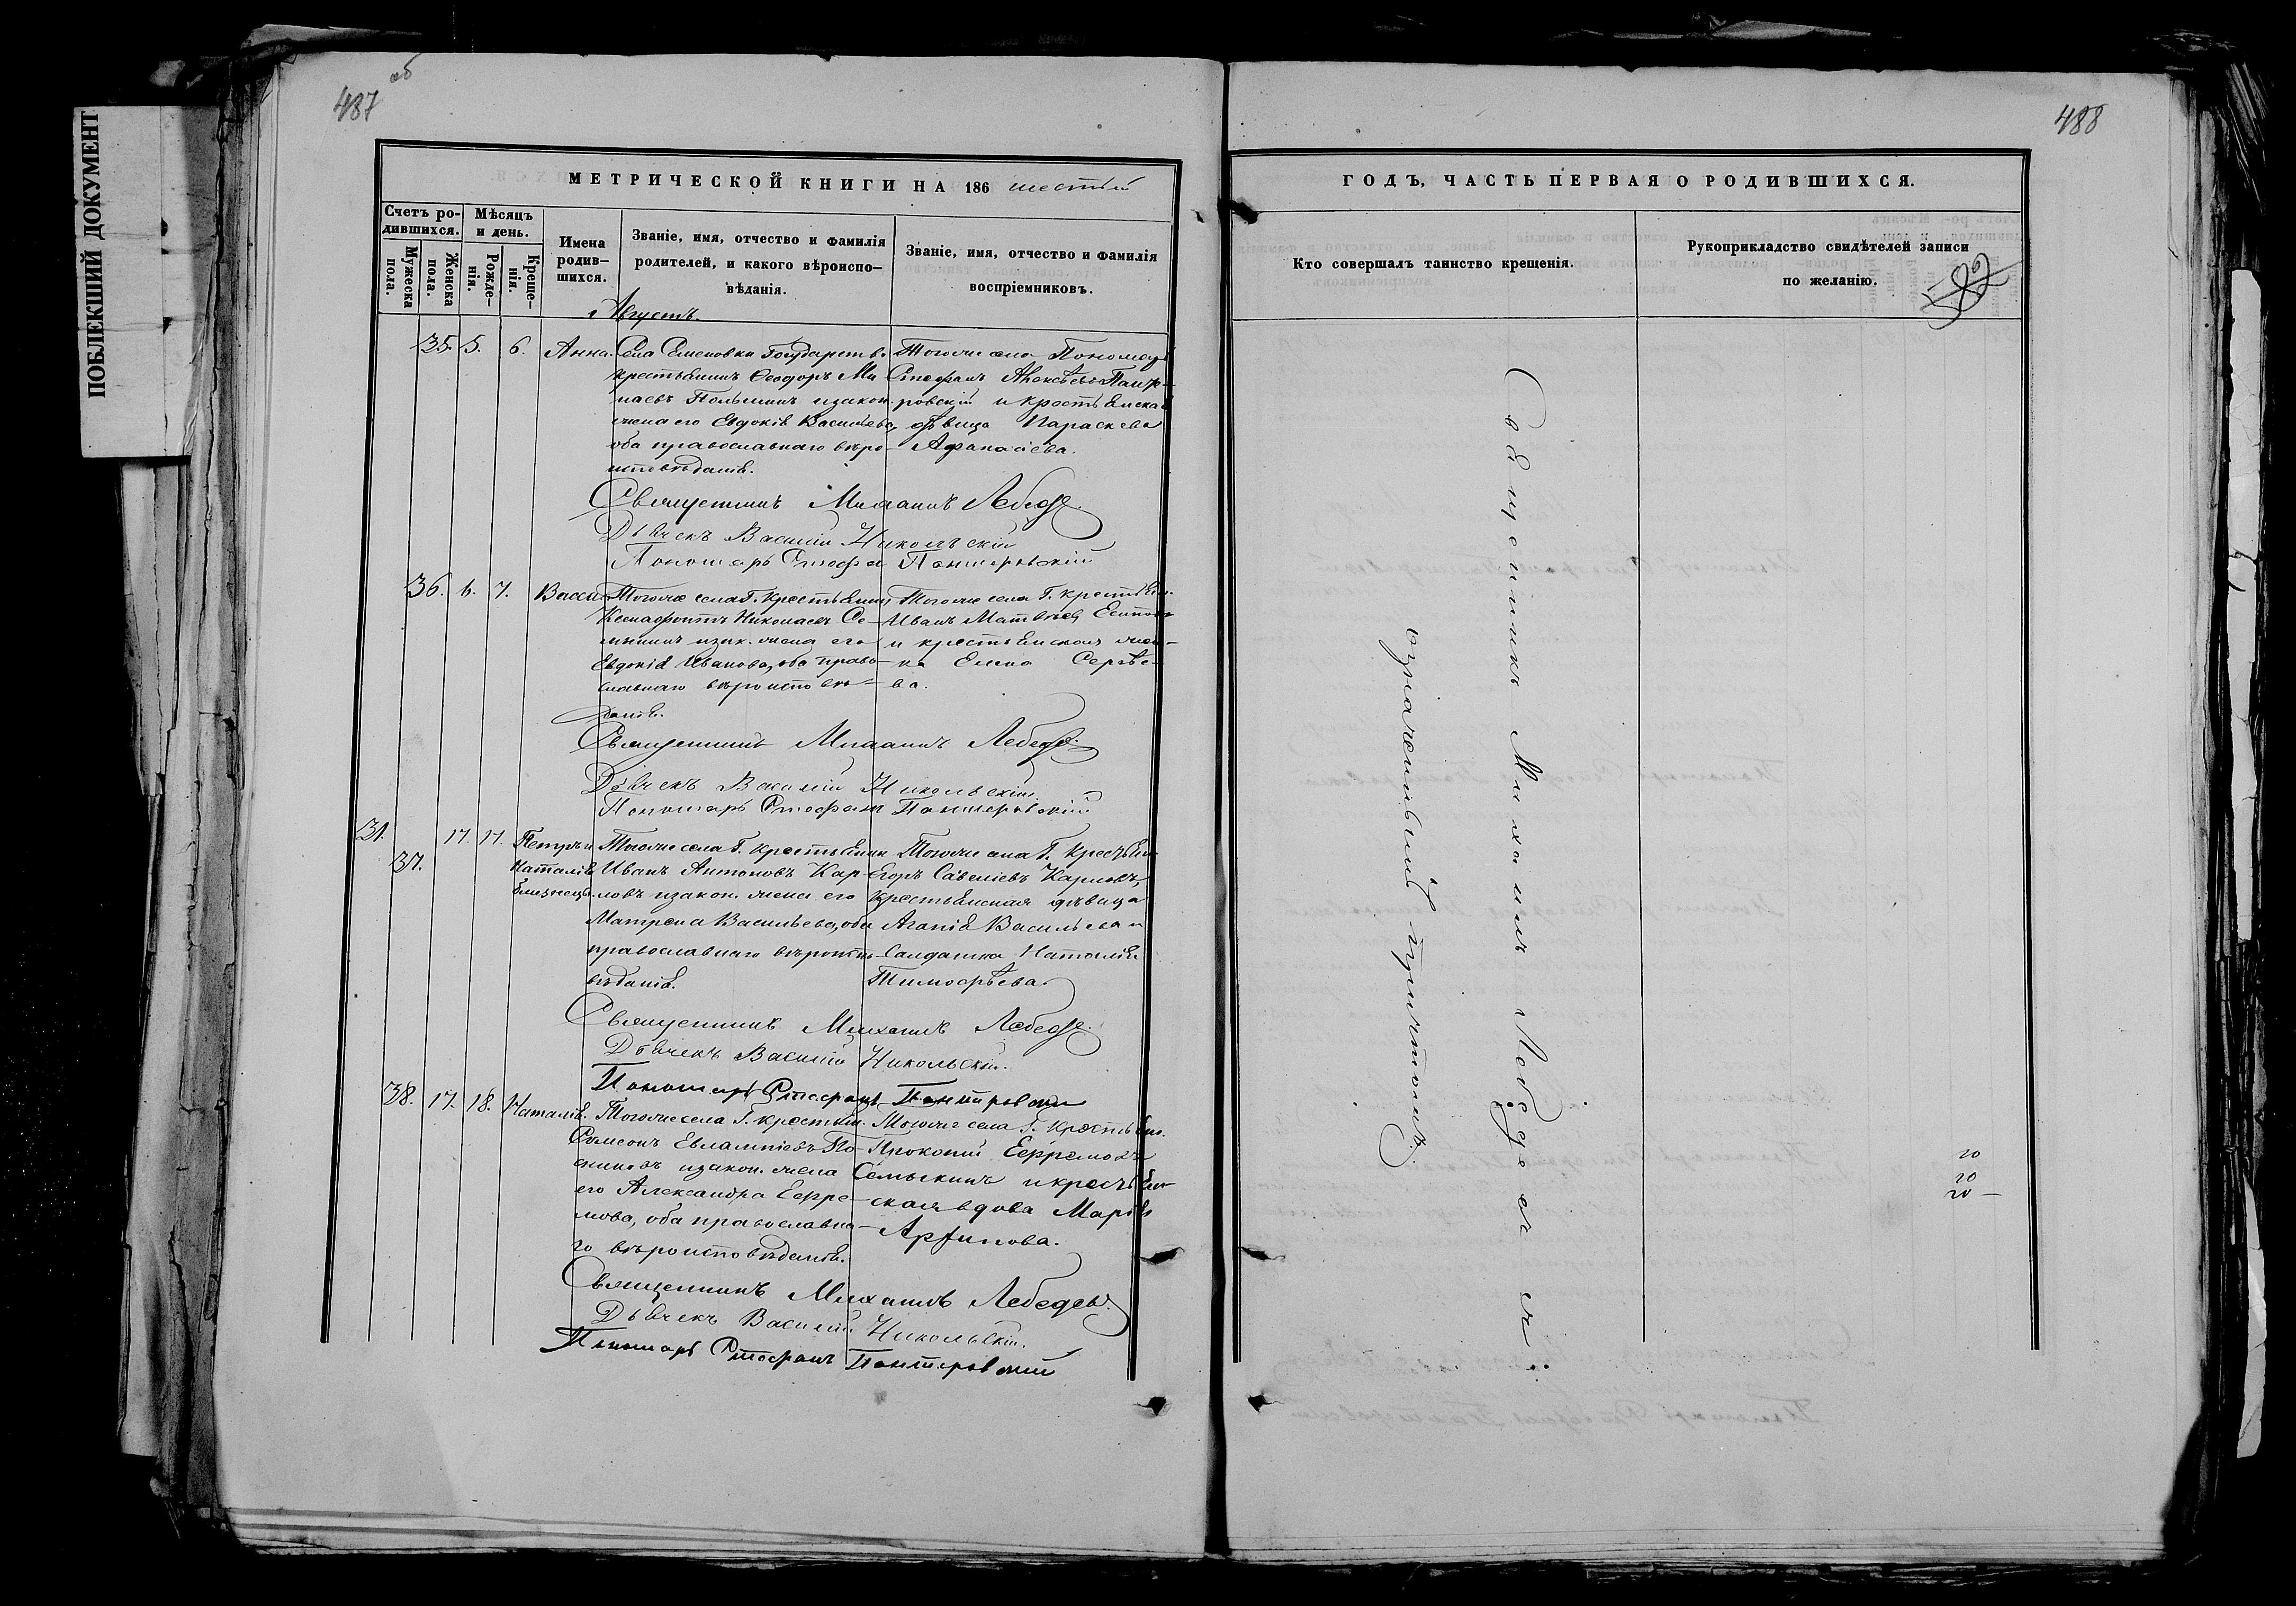 ПОБЛЕКШИЙ ДОКУМЕНТ
487 об
МЕТРИЧЕСКОЙ КНИГИ НА 186 шестый
Счетъ ро-
дившихся.
Мужеска
пола.
Женска
пола.
Мѣсяцъ
и день.
Рожде-
нія.
Креще-
нія.
Имена
родив-
шихся.
Званіе, имя, отчество и фамилія
родителей, и какого вѣроиспо-
вѣданія.
Званіе, имя, отчество и фамилія
воспріемниковъ.
Августъ.
35. 5. 6. Анна.
Села Семеновки Государств.
крестьянинъ Ѳеодоръ
и закон.
жена его Евдокія Васильева,
оба православнаго вѣро-
исповѣданія.
Тогоже села Пономарь
Стефанъ Алексѣевъ Пант-
ровскій и крестьянская
дѣвица Параскева
Афанасіева.
Священникъ Михаилъ Лебедев
Дьячекъ Василій Никольскій
Пономарь Стефан Пантеровскій
36. 6. 7. Васса
Тогоже села Г. крестьянин
Ксенофонтъ Николаевъ Се-
и зак. жена его
Евдокія Иванова, оба право-
славнаго вѣроисповѣ-
данія.
Тогоже села Г. крестьян.
Иванъ Матвѣев
и крестьянская жен-
ка Елена Сергѣе-
ва.
Священникъ Михаилъ Лебедев
Дьячекъ Василій Никольскій.
Пономарь Стефанъ Пантеровскій
31.
37.
17. 17. Петръ и
Наталія
близнецы.
Тогоже села Г. крестьянин
Иванъ Антоновъ Кар-
ловъ и закон. жена его
Матрена Васильева, оба
православнаго вѣроиспо-
вѣданія.
Тогоже села Г. крестьян-
Егоръ Савеліевъ Карловъ,
крестьянская дѣвица
Агапія Васильева и
Салдатка Наталія
Тимофѣева.
Священникъ Михаилъ Лебедев.
Дьячекъ Василій Никольскій.
Пономарь Стефанъ Пантеровскій
38. 17. 18. Наталія.
Тогоже села Г. крестьян.
Самсонъ Евлампіевъ
и закон. жена
его Александра Ефре-
мова, оба православна-
го вѣроисповѣданія.
Тогоже села Г. крестьян.
Прокопій Ефремовъ
Семыкинъ и крестьян-
ская вдова Марія
Архипова.
Священникъ Михаилъ Лебедевъ.
Дьячекъ Василій Никольскій.
Пономарь Стефанъ Пантеровскій
488
ГОДЪ, ЧАСТЬ ПЕРВАЯ О РОДИВШИХСЯ.
Кто совершалъ таинство крещенія.
Рукоприкладство свидѣтелей записи
по желанію.
582
Священникъ Михаилъ Лебедевъ
съ означеннымъ причтомъ.
20
20
20 —